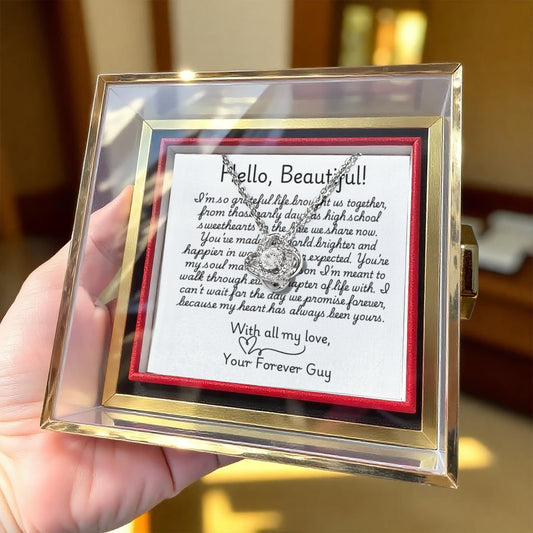 Hello, Beautiful!
I'm so grateful life brought us together,
from those early days as high school
sweethearts to the we share now.
You've made brighter and
happier in expected. You're
my soul I'm meant to
walk through chapter of life with. I
can't wait for the day we promise forever,
because my heart has always been yours.
With all my love,
Your Forever Guy